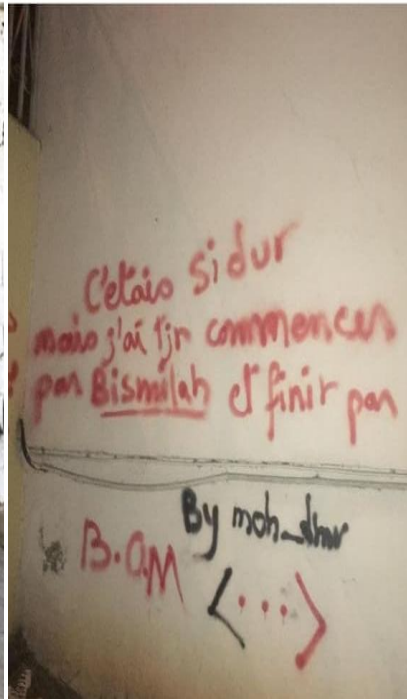 C'etais si dur
mais j'ai tjr commencer
par Bismilah et finir par
By moh_dhr
B.O.M
<...>